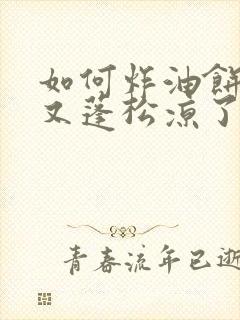 如何炸油餅
又蓬松凉了
青春流年已逝